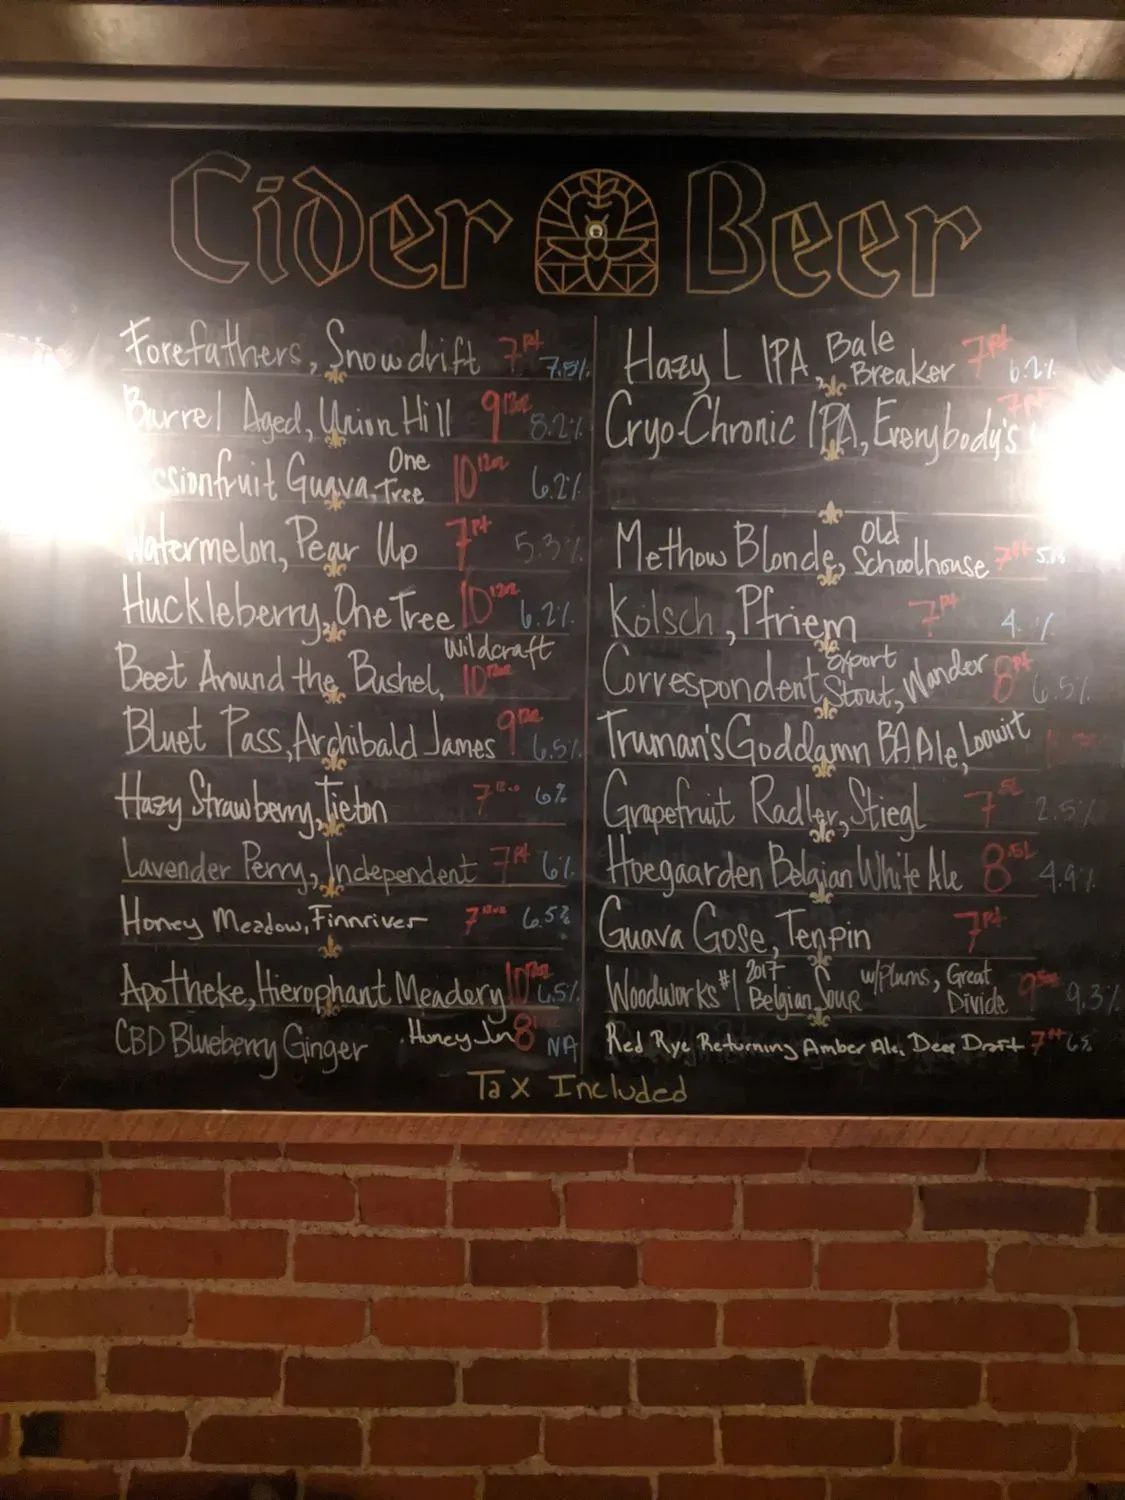 Cider Beer
Forefathers, Snowdrift 7 pt 7.5%
Barrel Aged, Union Hill 9 12oz 8.2%
Guava, One Tree 10 12oz 6.2%
Watermelon, Pear Up 7 pt 5.3%
Huckleberry, One Tree 10 12oz 6.2%
Beet Around the Bushel, Wildcraft 10 12oz
Bluet Pass, Archibald James 9 12oz 6.5%
Hazy Strawberry, Tieton 7 6%
Lavender Perry, Independent 7 pt 6%
Honey Meadow, Finnriver 7 12oz 6.5%
Apotheke, Hierophant Meadery 10 12oz 6.5%
CBD Blueberry Ginger Honey Jun 8 NA
Hazy L IPA, Bale Breaker 7 pt 6.2%
Cryo-Chronic IPA, Everybody's 7 pt
Methow Blonde, Old Schoolhouse 7 pt
Kölsch, Pfriem 7 pt
Correspondent Export Stout, Wander 8 pt 6.5%
Truman's Goddamn BA Ale, Loowit
Grapefruit Radler, Stiegl 7 .5L 2.5%
Hoegaarden Belgian White Ale 8 .5L 4.9%
Guava Gose, Tenpin 7 pt
Woodworks #1 2017 Belgian Sour w/Plums, Great Divide 9 9.3%
Red Rye Returning Amber Ale, Deer Draft 7 pt 6%
Tax Included